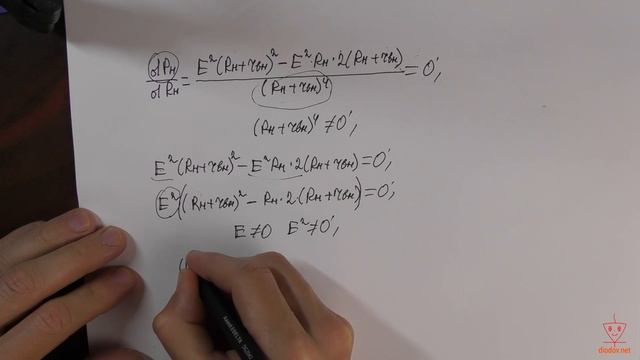 dPн/dRн = (E²(Rн+rвн)² − E²Rн·2(Rн+rвн))/(Rн+rвн)⁴ = 0;
(Rн+rвн)⁴ ≠ 0;
E²(Rн+rвн)² − E²Rн·2(Rн+rвн) = 0;
E²((Rн+rвн)² − Rн·2·(Rн+rвн)) = 0;
E ≠ 0 E² ≠ 0;
(
diodov.net